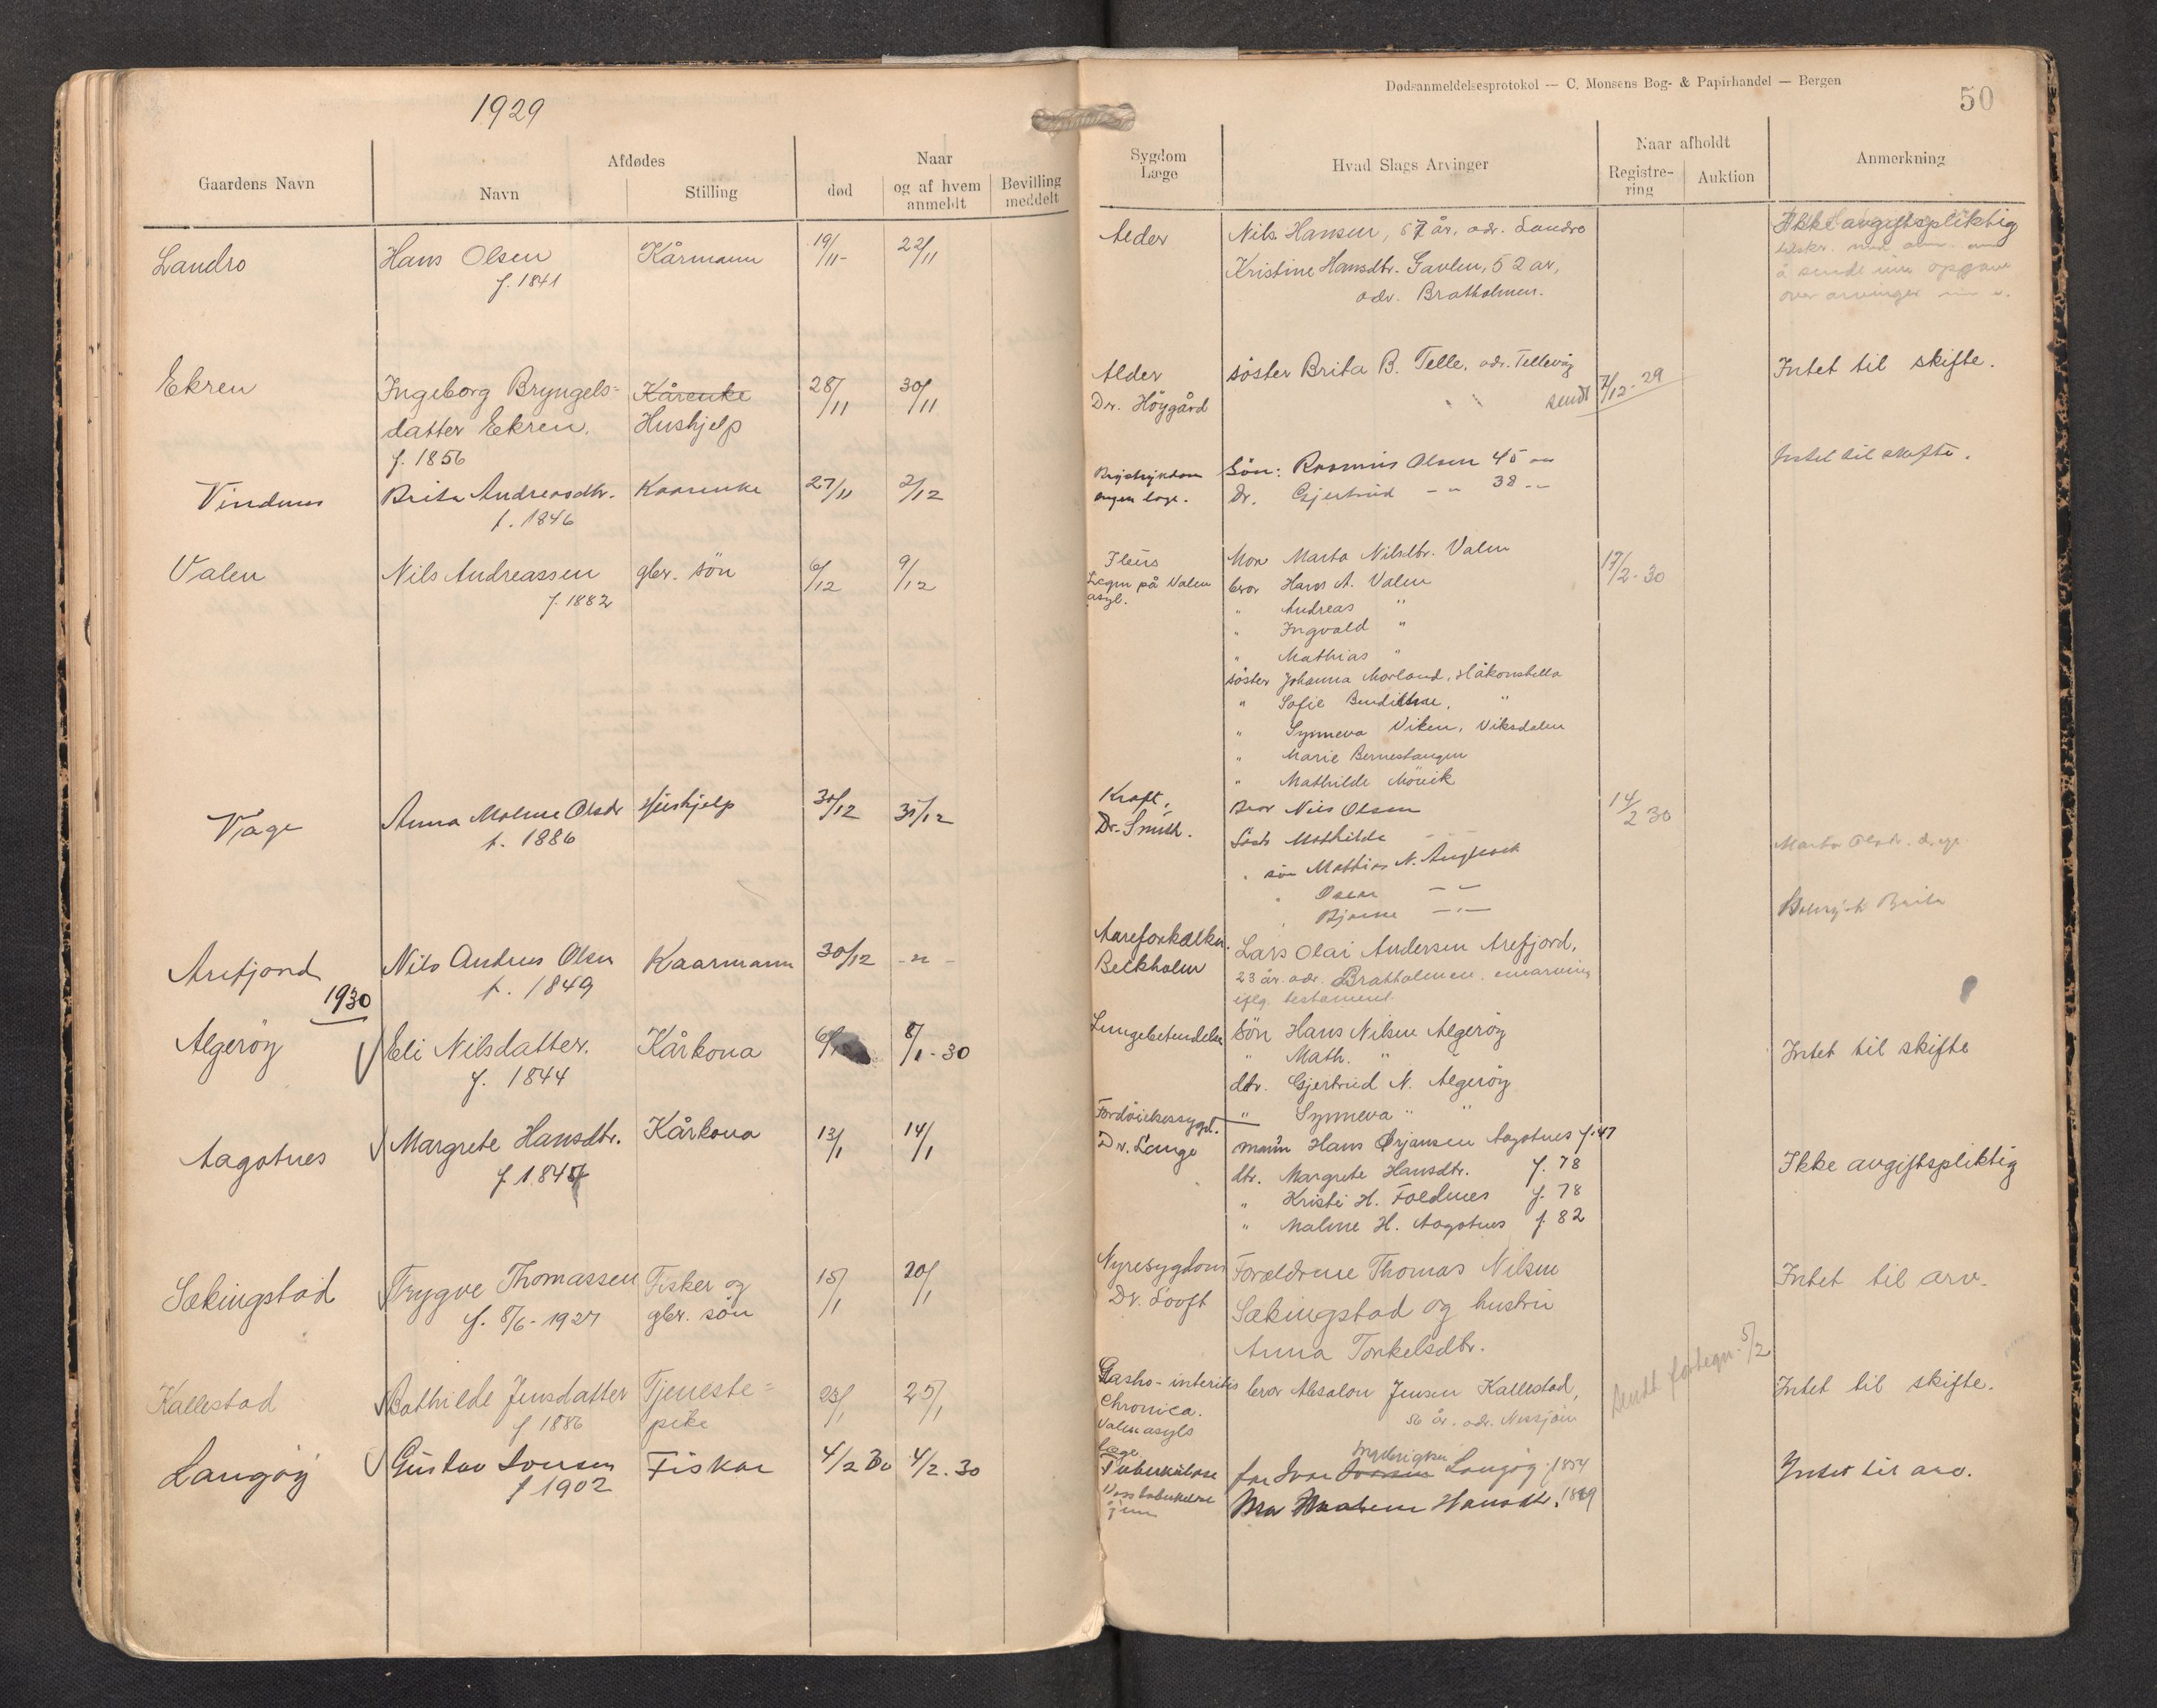 1929
Dødsanmeldelsesprotokol — C. Monsens Bog- & Papirhandel — Bergen
50
Gaardens Navn
Afdødes
Navn
Stilling
Naar
død
og af hvem anmeldt
Bevilling meddelt
Sygdom
Læge
Hvad Slags Arvinger
Naar afholdt
Registre-
ring
Auktion
Anmerkning
Landro
Hans Olsen
f. 1841
Kårmann
19/11-
22/11
Alder
Nils Hansen, 57 år, adr. Landro
Kristine Hansdtr. Gavlen, 52 år,
adr. Bratholmen.
Ikke avgiftspliktig
å sende inn opgave
over arvinger
Ekren
Ingeborg Bryngels-
datter Ekren.
f. 1856
Kårenke
Hushjelp
28/11
30/11
Alder
Dr. Höygård
söster Brita B. Telle, adr. Tellevåg
sendt 7/12-29
Intet til skifte.
Vindenes
Brita Andreasdtr.
f. 1846
Kaarenke
27/11
2/12
Brystsykdom
ingen læge.
Sön: Rasmus Olsen 45 år
Dr. Gjertrud -"- 38 -"-
Intet til skifte.
Valen
Nils Andreassen
f. 1882
gbr. sön
6/12
9/12
Ileus
Lægen på Valen
asyl.
Mor Marta Nilsdtr. Valen
bror Hans A. Valen
" Andreas "
" Ingvald "
" Mathias "
söster Johanna Morland, Håkonshella
" Sofie Bendiktsen, "
" Synneva Viken, Viksdalen
" Marie Bernestangen
" Mathilde Mövik
17/2-30
Våge
Anna Malene Olsdr
f. 1886
Hushjelp
30/12
31/12
Kræft.
Dr. Smith.
Bror Nils Olsen
Söst. Mathilde
" sön Mathias N.
" Oskar -"-
" Bjarne -"-
14/2 30
Marta Olsdr.
Brita
Arefjord
Nils Andreas Olsen
f. 1849
Kaarmann
30/12
-"-
Aareforkalkn.
Beckholm
Lars Olai Andersen Arefjord,
23 år. adr. Bratholmen. enearving
iflg. testament.
1930
Algeröy
Eli Nilsdatter.
f. 1844
Kårkona
8/1-30
Lungebetendelse
Sön Hans Nilsen Algeröy
" Math. " "
dtr. Gjertrud N. Algeröy
" Synneva " "
Intet til skifte
Aagotnes
Margrete Hansdtr.
f. 1847
Kårkona
13/1
14/1
Fordöielsessygd.
Dr. Lange
mann Hans Örjansen Aagotnes f. 47
dtr. Margrete Hansdtr. f. 78
" Kristi H. Foldnes f. 78
" Malene H. Aagotnes f. 82
Ikke avgiftspliktig
Sækingstad
Trygve Thomassen
f. 8/6-1927
Fisker og
gbr. sön
15/1
20/1
Nyresygdom
Dr. Looft
Forældrene Thomas Nilsen
Sækingstad og hustru
Anna Torkelsdtr.
Intet til arv.
Kallestad
Bothilde Jensdatter
f 1886
Tjeneste-
pike
23/1
25/1
Gastro-interitis
chronica.
Valen asyls
læge
bror Absalon Jensen Kallestad,
56 år. adr. Nessjöen
Sendt fortegn. 5/2
Intet til skifte.
Langöy
Gustav Iversen
f 1902
Fiskar
4/2 30
4/2.30
Tuberkulose
Voss tuberkulose
hjem
far Ivar Ingebrigtsen Langöy f 1854
Mor Hansdtr. 1869
Intet til arv.